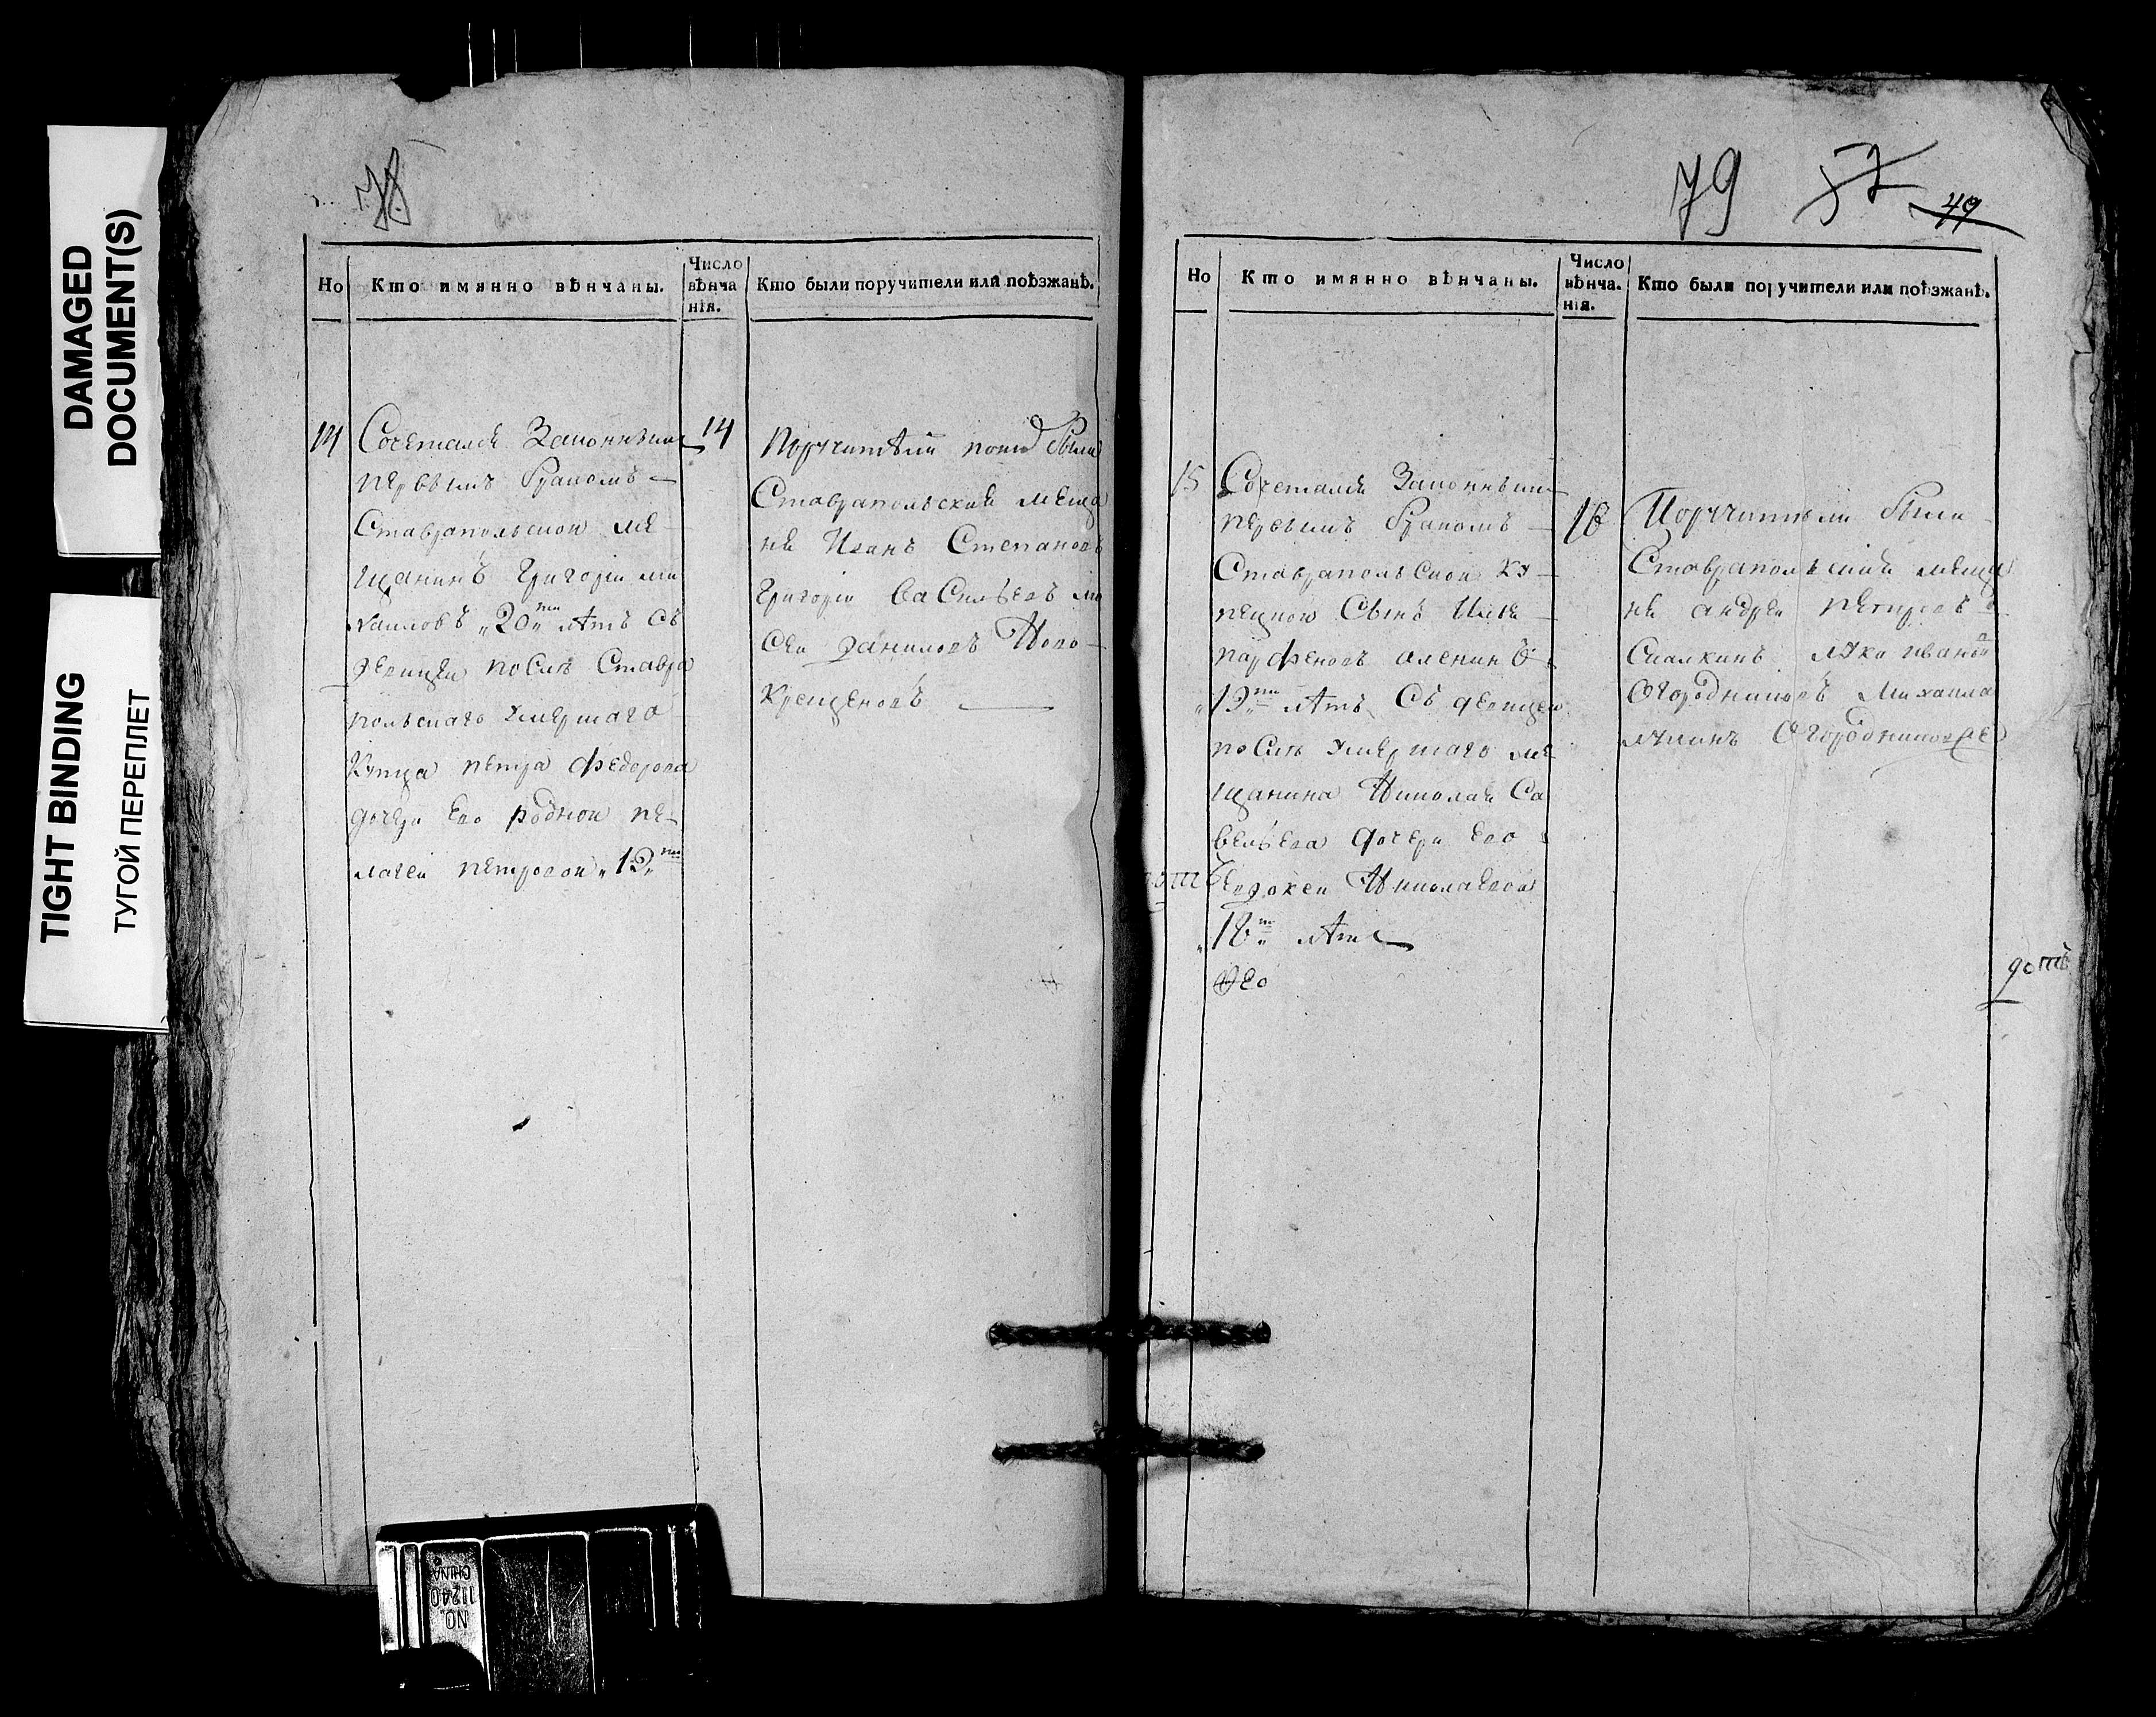 DAMAGED
DOCUMENT(S)
TIGHT BINDING
ТУГОЙ ПЕРЕПЛЕТ
78
Но
Кто имянно вѣнчаны.
Число
вѣнча
нія.
Кто были поручители или поѣзжанѣ.
14
Сочетался Законнымъ
первымъ бракомъ
Ставрапольской ме
щанинъ Григореи Ми
хаиловъ „20„ ти лѣтъ Съ
девицеи после Ставра
польскаго умершаго
Купца петра федорова
дочери Ево родной пе
лагеи петровой „19„ ти
14
Поручители по них были
Ставрапольския меща
не Иванъ Степановъ
Григореи Васильевъ Мо
сеи даниловъ Ново
Крещеновъ
79 57 49
Но
Кто имянно вѣнчаны.
Число
вѣнча.
нія.
Кто были поручители или поѣзжанѣ.
15
Сочетался Законнымъ
первымъ бракомъ
Ставрапольской Ку
пецкой Сынъ
парфеновъ аленинъ
„19„ ти лѣтъ Съ девицеи
после умершаго ме
щанина Николая Са
вельева дочери Ево
Евдокеи Николаевои
„18„ ти лѣтъ
Ѳео
16
Поручители были
Ставрапольския меща
не андреи петровъ
Скалкинъ лука иванов
Огородниковъ Михаила
лукинъ Огородниковы
NO.
11240
CHINA